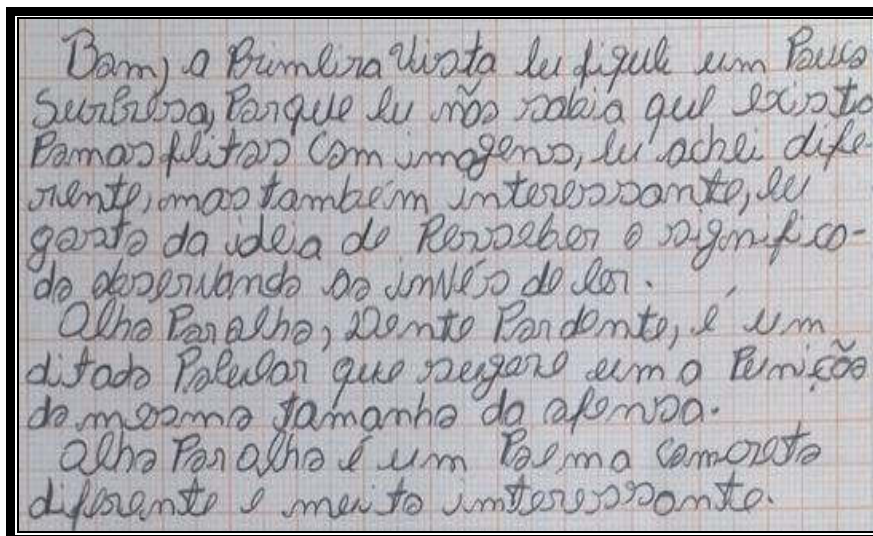 Bom, a Primeira Vista eu fiquei um Pouco
Surpresa, Porque eu não sabia que existia
Poemas feitos com imagens, eu achei dife-
rente, mas também interessante, eu
gosto da ideia de Persseber o significa-
do observando ao invés de ler.
Olho Por olho, Dente Por dente, é um
ditado Popular que sugere uma Punição
do mesmo tamanho da ofensa.
Olho Por olho é um Poema concreto
diferente e muito interessante.